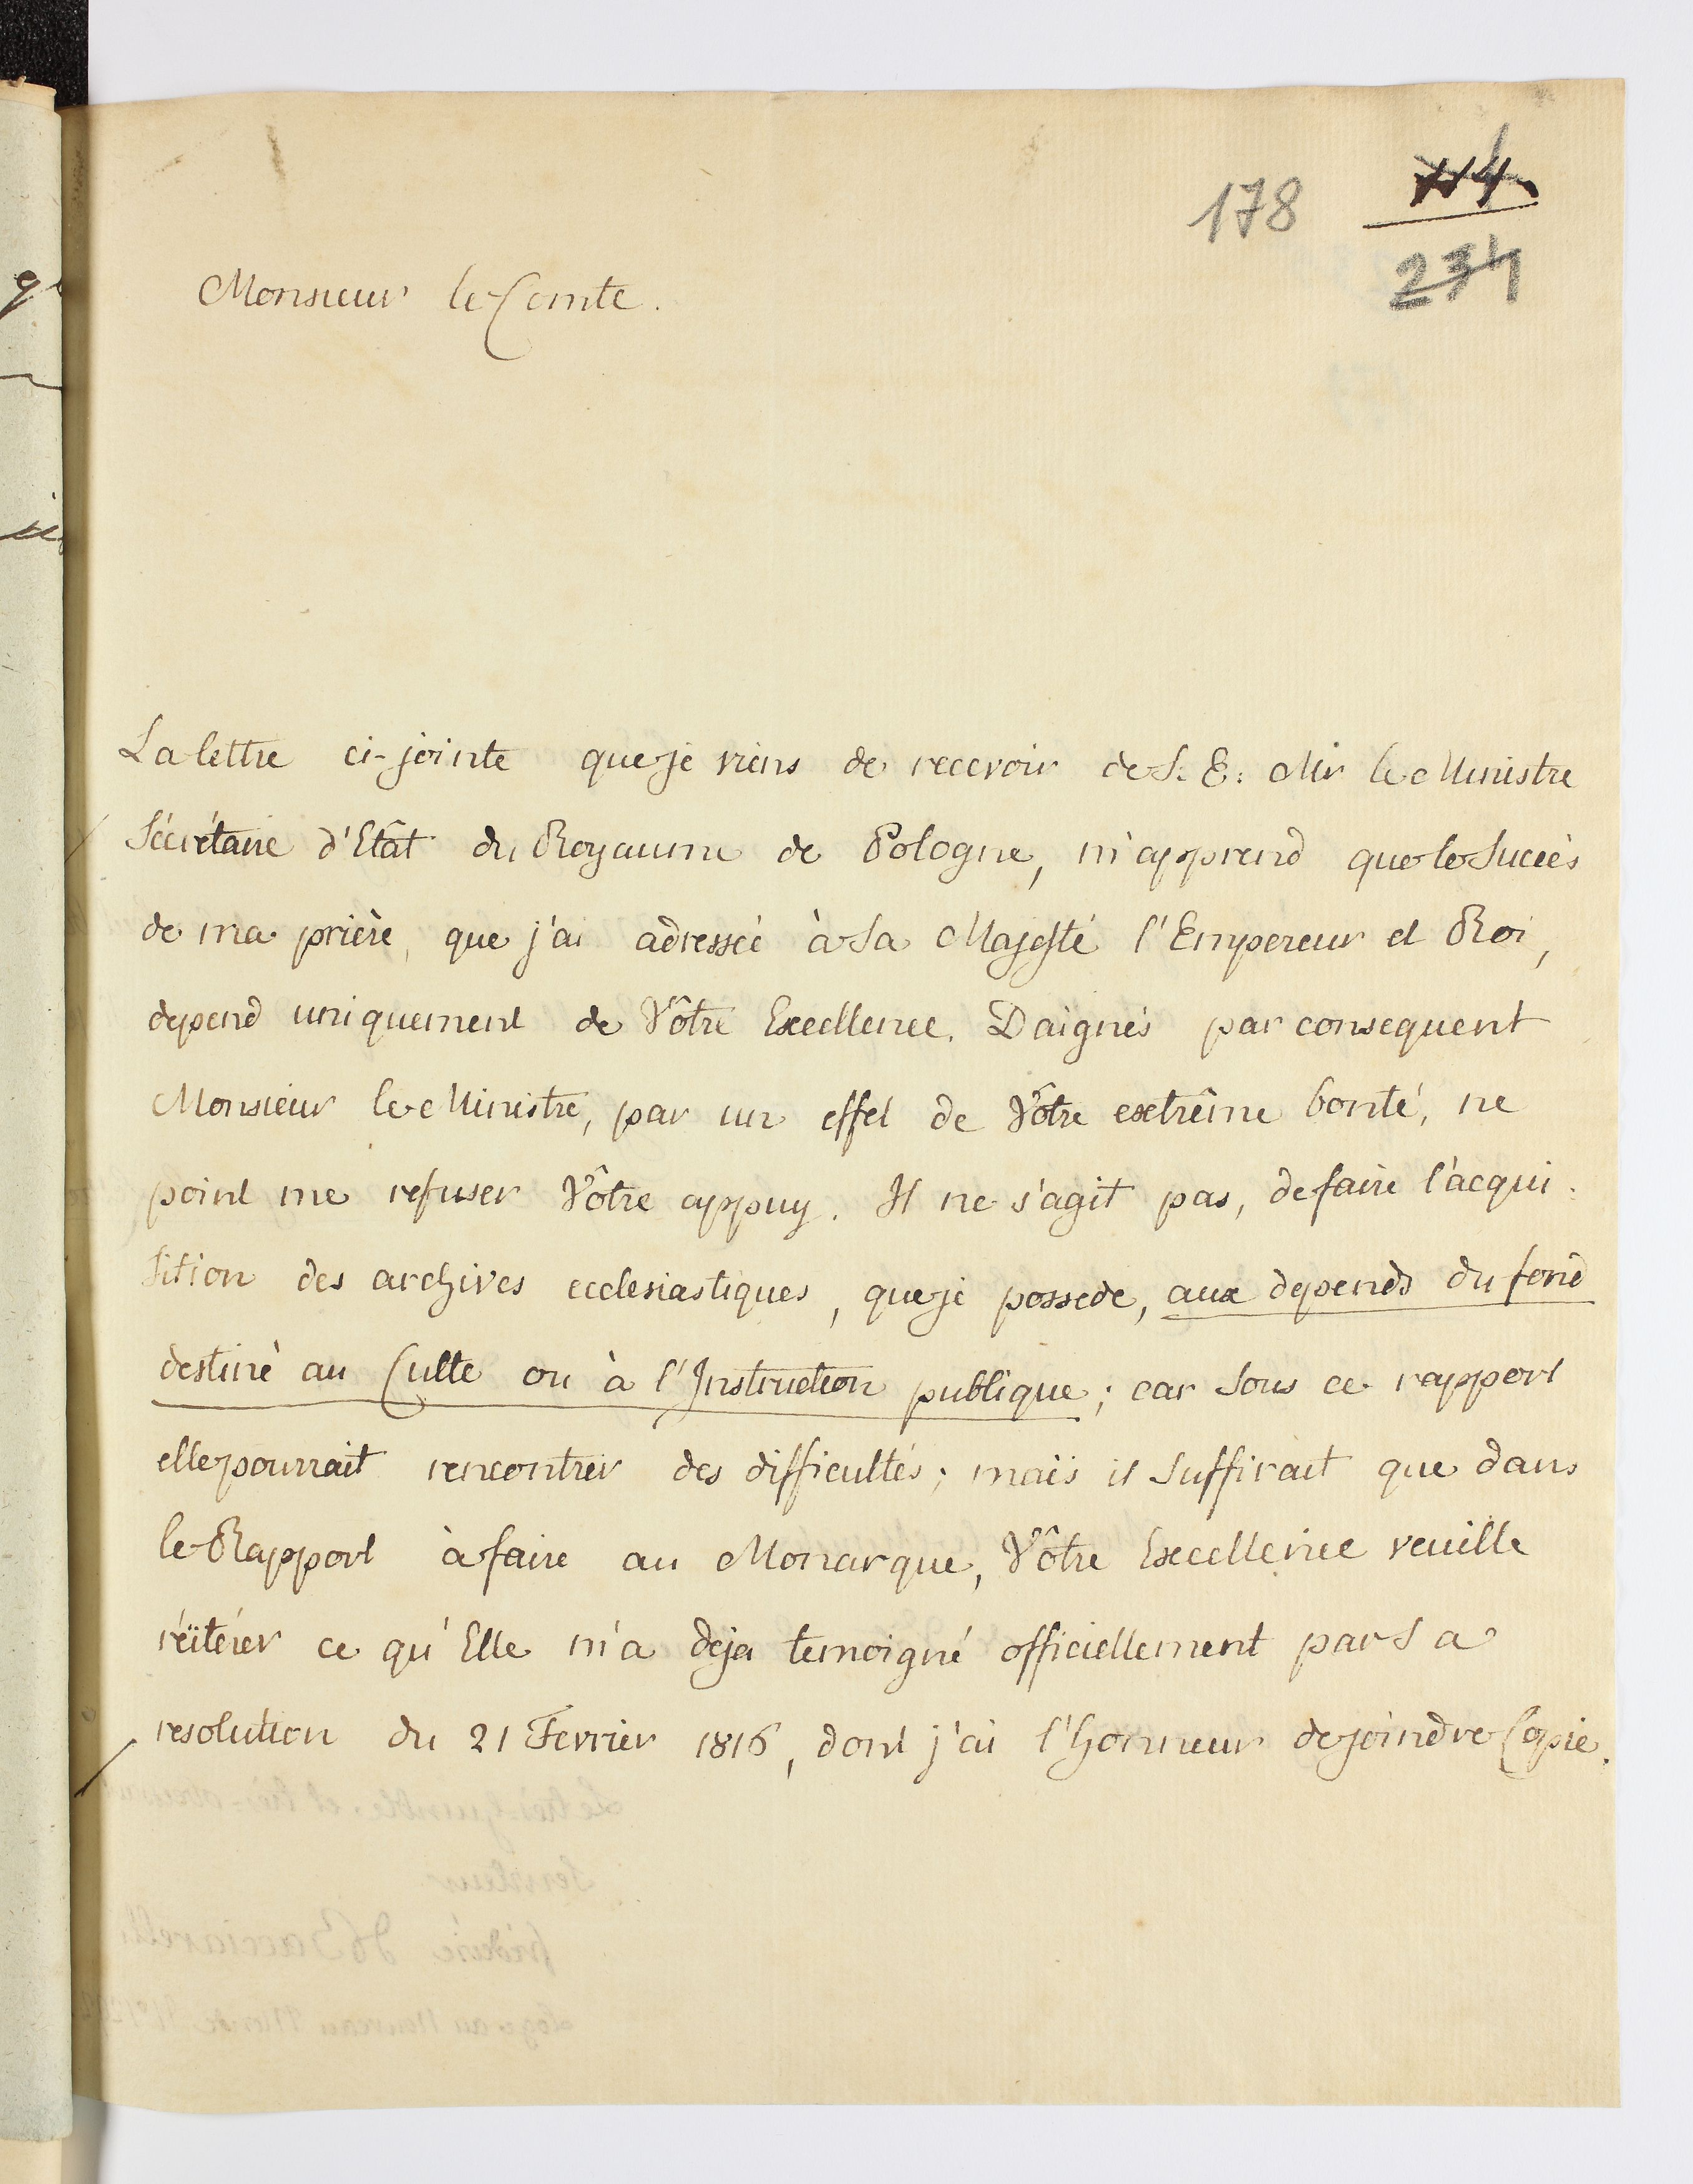 178
114
234
Monsieur le Comte.
La lettre ci-jointe que je viens de recevoir de S. E. Mr le Ministre
Sécrétaire d'Etât du Royaume de Pologne, m'apprend que le Succès
de ma prière, que j'ai adressée à Sa Majesté l'Empereur et Roi,
depend uniquement de Vôtre Excellence. Daignés par consequent
Monsieur le Ministre, par un effet de Vôtre extrême bonté, ne
point me refuser Vôtre appuy. Il ne s'agit pas, de faire l'acqui-
sition des archives ecclesiastiques, que je possede, aux depends du fond
destiné au Culte ou à l'Instruction publique; car Sous ce rapport
elle pourrait rencontrer des difficultés; mais il Suffirait que dans
le Rapport à faire au Monarque, Vôtre Excellence veuille
réïtérer ce qu'Elle m'a deja temoigné officiellement par Sa
resolution du 21 Fevrier 1816, dont j'ai l'honneur de joindre Copie.